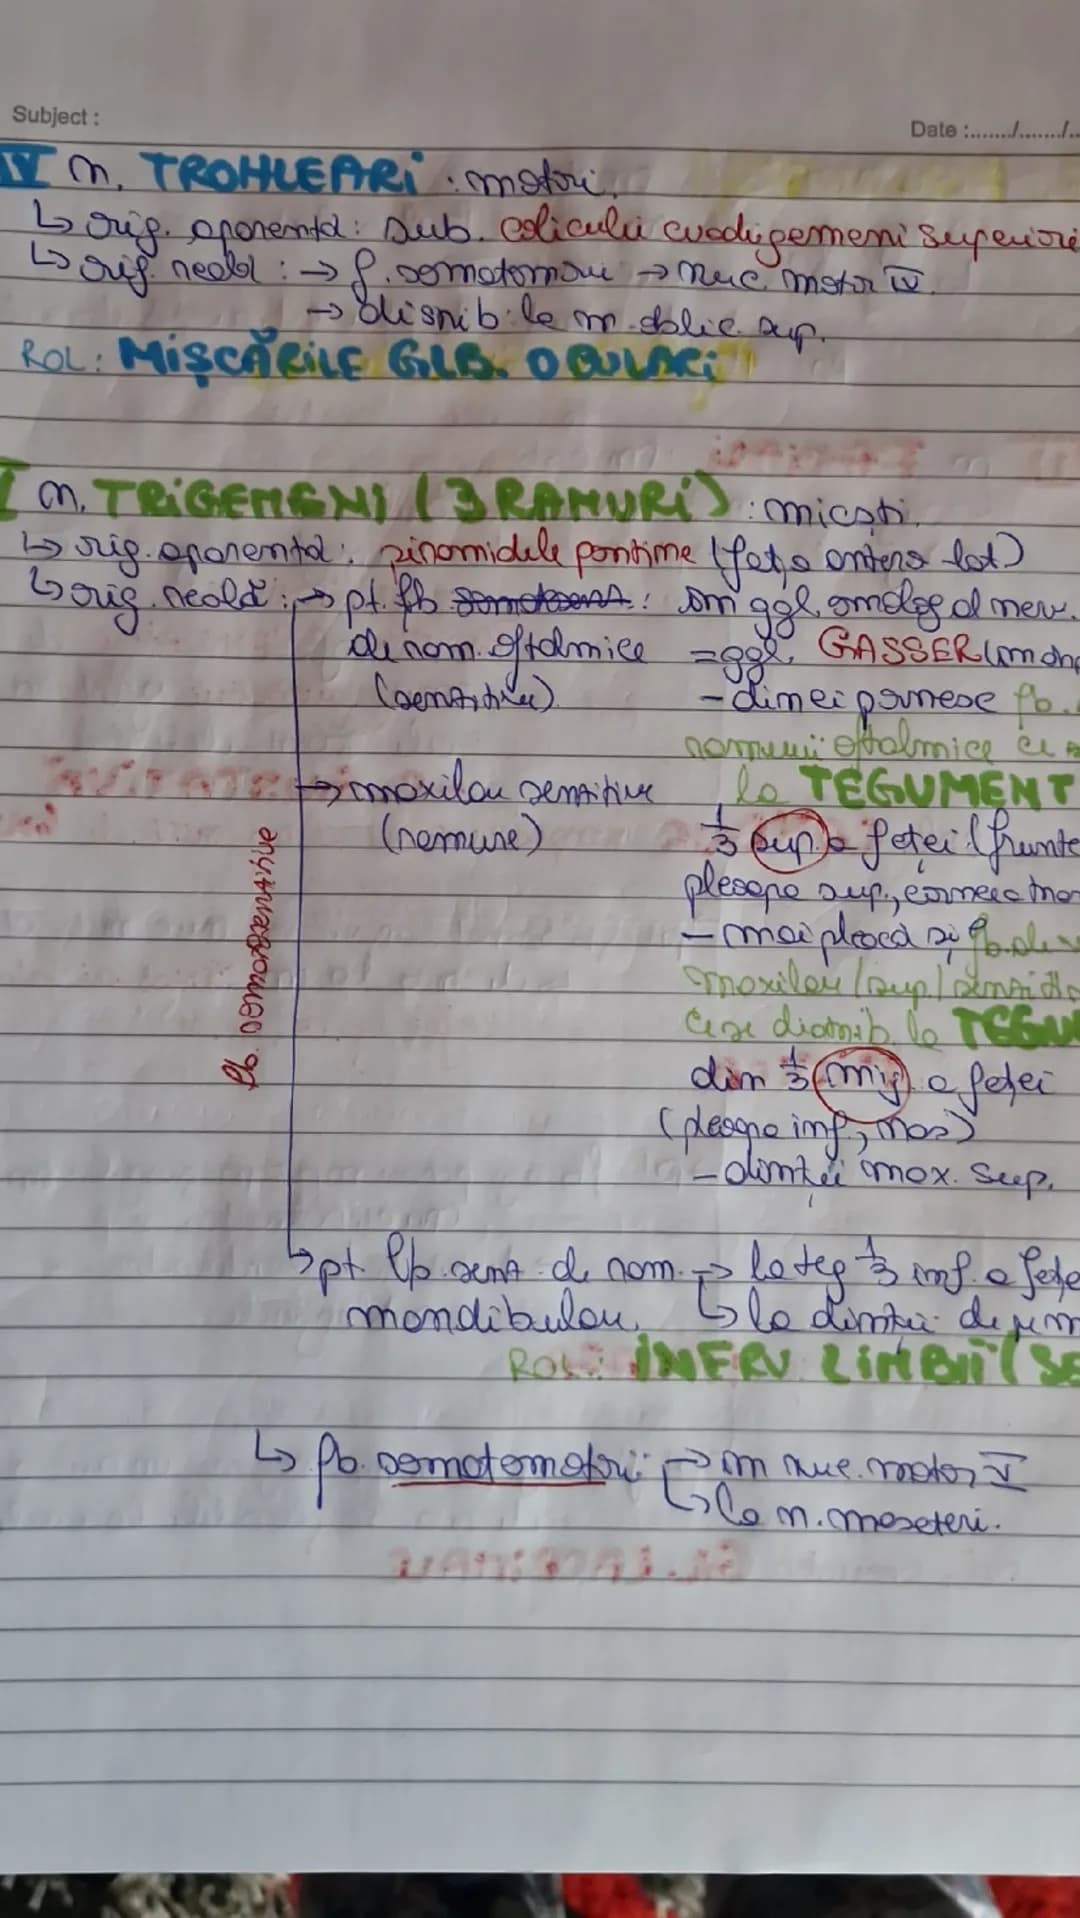 Subject :
Date :......./......./..
IV n. TROHLEARI : motori.
↳ orig. aparentă: sub. coliculii cvadrigemeni superiori
↳ orig. reală : → f. somatomotorii → nuc. motor IV.
→ distrib. la m. oblic. sup.
ROL: MIȘCĂRILE GLB. OCULARI
n. TRIGEMENI (3 RAMURI) : micști.
↳ orig. aparentă: piramidele pontine (fața antero lat)
↳ orig. reală: → pt. fb : în ggl. omolog al nerv.
din ram. oftalmice = ggl. GASSER
(senzitive) - din ei pornesc fb.
ramurii oftalmice
→ maxilar senzitive la TEGUMENT
(ramure) 1/3 sup. a feței (frunte
pleoape sup.,
- mai pleacă și fb. de
maxilar (sup)
ce se distrib. la
din 1/3 mij a feței
(pleoape inf., nas)
- dinții max. sup.
fb. somatosenzitive
↳ pt. fb. senz. de ram. → la teg 1/3 inf. a
mandibular. ↳ la dinții de pe
ROL: INERV. LIMBII
↳ fb. somatomotorii: → în nuc. motor V
↳ la m. maseteri.